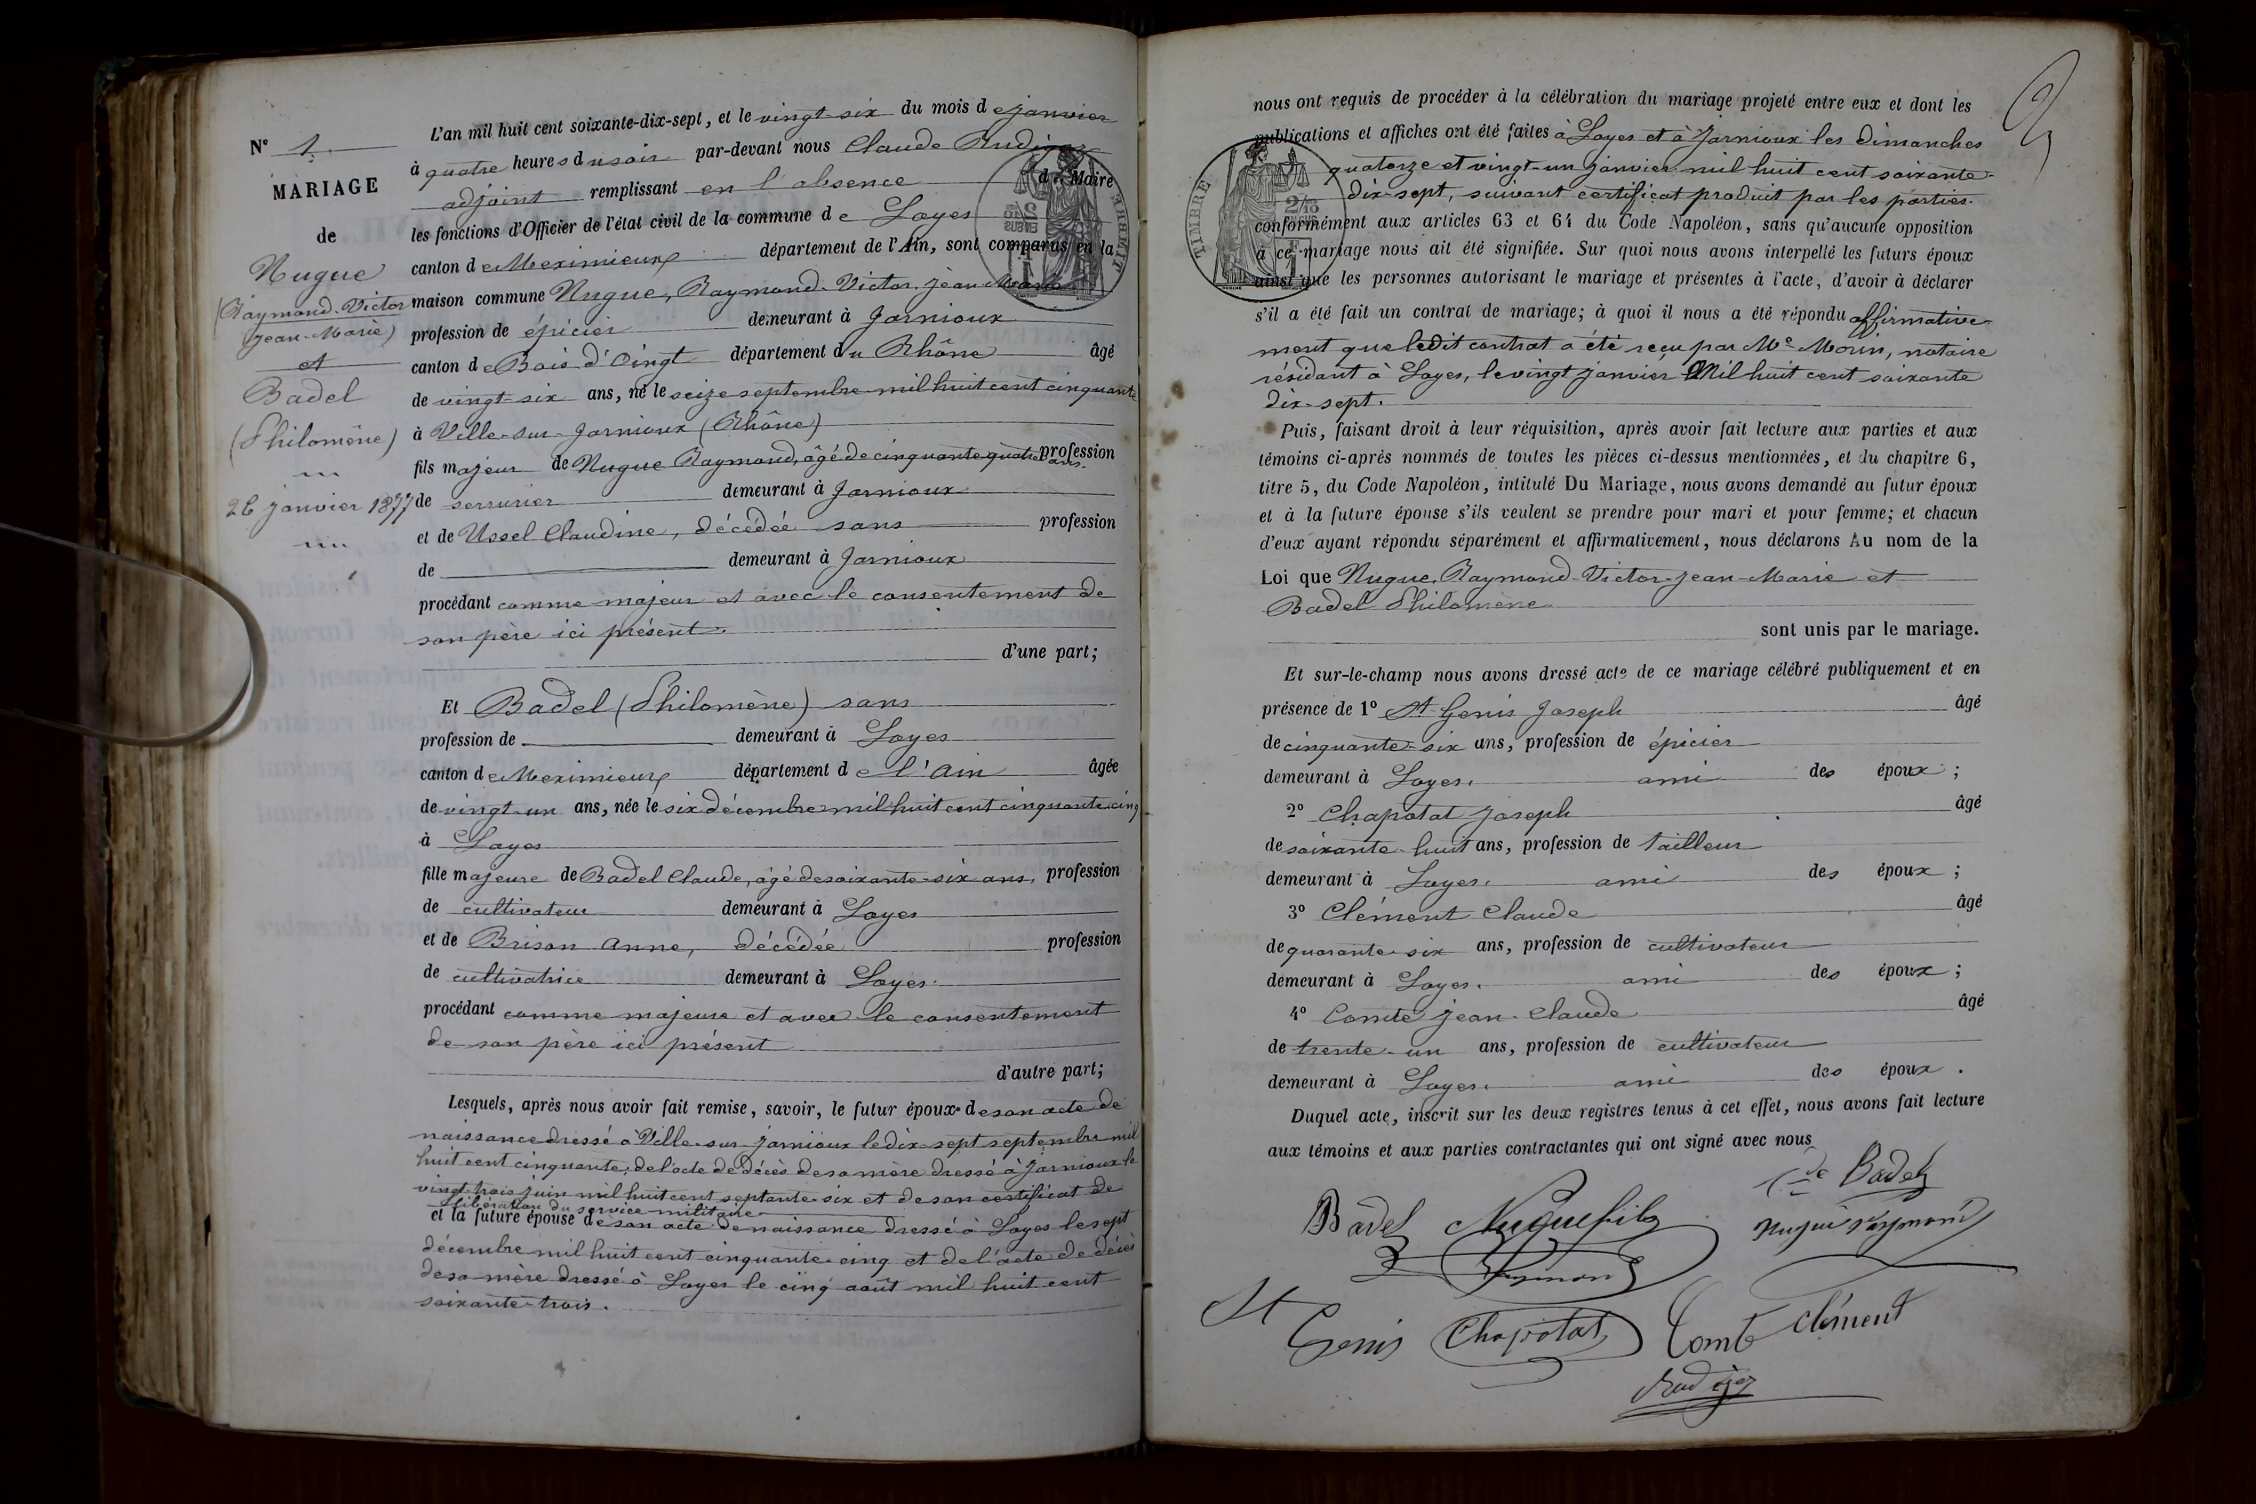 N° 1.
MARIAGE
de
Nugue
(Raymond-Victor
Jean-Marie)
et
Badel
(Philomène)
26 janvier 1877
L'an mil huit cent soixante-dix-sept, et le vingt-six du mois de janvier
à quatre heures du soir par-devant nous Claude Rudigoz
adjoint remplissant en l'absence du Maire
les fonctions d'Officier de l'état civil de la commune de Loyes
canton de Meximieux département de l'Ain, sont comparus en la
maison commune Nugue, Raymond-Victor-Jean-Marie
profession de épicier demeurant à Jarnioux
canton de Bois-d'Oingt département du Rhône âgé
de vingt-six ans, né le seize septembre mil huit cent cinquante
à Ville-sur-Jarnioux (Rhône)
fils majeur de Nugue Raymond, âgé de cinquante-quatre ans. profession
de serrurier demeurant à Jarnioux
et de Ussel Claudine, décédée sans profession
de demeurant à Jarnioux
procédant comme majeur et avec le consentement de
son père ici présent.
d'une part;
Et Badel (Philomène) sans
profession de demeurant à Loyes
canton de Meximieux département de l'Ain âgée
de vingt-un ans, née le six décembre mil huit cent cinquante-cinq
à Loyes
fille majeure de Badel Claude, âgé de soixante-six ans, profession
de cultivateur demeurant à Loyes
et de Brison Anne, décédée profession
de cultivatrice demeurant à Loyes.
procédant comme majeure et avec le consentement
de son père ici présent
d'autre part;
Lesquels, après nous avoir fait remise, savoir, le futur époux de son acte de
naissance dressé à Ville-sur-Jarnioux le dix-sept septembre mil
huit cent cinquante; de l'acte de décès de sa mère dressé à Jarnioux le
vingt-trois juin mil huit cent septante-six et de son certificat de
libération du service militaire
et la future épouse de son acte de naissance dressé à Loyes le sept
décembre mil huit cent cinquante-cinq et de l'acte de décès
de sa mère dressé à Loyes le cinq août mil huit cent
soixante-trois.
2
nous ont requis de procéder à la célébration du mariage projeté entre eux et dont les
publications et affiches ont été faites à Loyes et à Jarnioux les dimanches
quatorze et vingt-un janvier mil huit cent soixante-
dix-sept, suivant certificat produit par les parties.
conformément aux articles 63 et 64 du Code Napoléon, sans qu'aucune opposition
à ce mariage nous ait été signifiée. Sur quoi nous avons interpellé les futurs époux
ainsi que les personnes autorisant le mariage et présentes à l'acte, d'avoir à déclarer
s'il a été fait un contrat de mariage; à quoi il nous a été répondu affirmative-
ment que ledit contrat a été reçu par Me Morin, notaire
résidant à Loyes, le vingt janvier Mil huit cent soixante
dix-sept.
Puis, faisant droit à leur réquisition, après avoir fait lecture aux parties et aux
témoins ci-après nommés de toutes les pièces ci-dessus mentionnées, et du chapitre 6,
titre 5, du Code Napoléon, intitulé Du Mariage, nous avons demandé au futur époux
et à la future épouse s'ils veulent se prendre pour mari et pour femme; et chacun
d'eux ayant répondu séparément et affirmativement, nous déclarons Au nom de la
Loi que Nugue, Raymond-Victor-Jean-Marie et
Badel Philomène
sont unis par le mariage.
Et sur-le-champ nous avons dressé acte de ce mariage célébré publiquement et en
présence de 1° St Genis Joseph âgé
de cinquante-six ans, profession de épicier
demeurant à Loyes. ami des époux;
2° Chapotat Joseph âgé
de soixante-huit ans, profession de tailleur
demeurant à Loyes. ami des époux;
3° Clément Claude âgé
de quarante-six ans, profession de cultivateur
demeurant à Loyes. ami des époux;
4° Comte Jean-Claude âgé
de trente-un ans, profession de cultivateur
demeurant à Loyes. ami des époux.
Duquel acte, inscrit sur les deux registres tenus à cet effet, nous avons fait lecture
aux témoins et aux parties contractantes qui ont signé avec nous
Badel
Badel Nugue fils Nugue Raymond
St Genis Chapotat Comte Clément
Rudigoz
TIMBRE